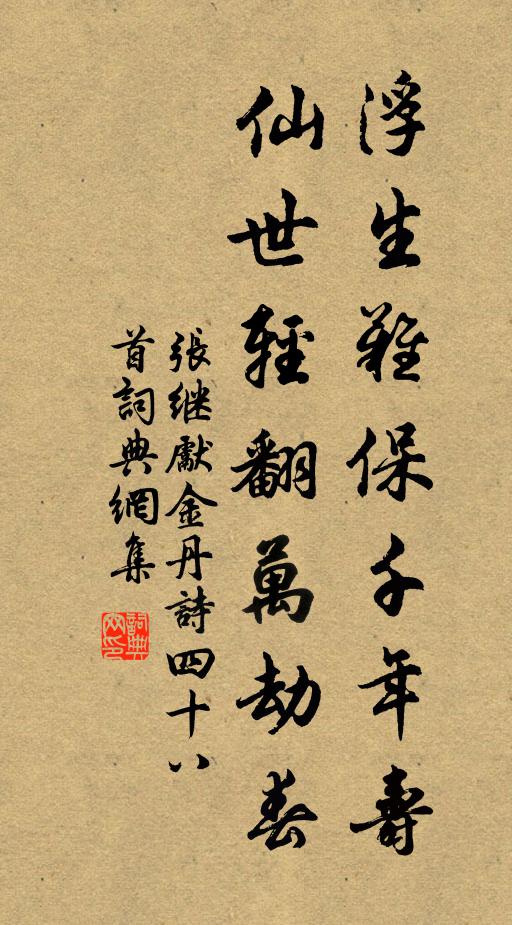 浮生難保千年壽
仙世輕翻萬劫春
張继獻金丹詩四十八
首詞典網集
詞典網印